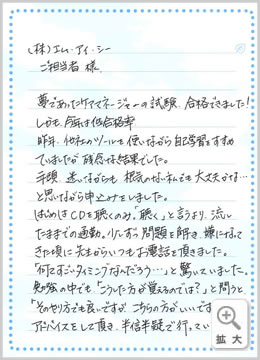 (株)エム・アイ・シー
ご担当者 様
夢であったケアマネージャーの試験、合格できました!
しかも、今年は低合格率
昨年、他社のツールを使いながら自己学習をすすめ
ていましたが残念な結果でした。
半頃、迷いながらも、根気のない私でも大丈夫かな…
と思いながら申込みをしました。
はじめはCDを聴くのみ。「聴く」と言うより、流し
たままでの通勤。少しずつ問題を解き、嫌になって
きた頃に先生からいつもお電話を頂きました。
「何てすごいタイミングなんだろう…」と驚いていました。
勉強の中でも、「こうした方が覚えるのでは?」と問うと、
「そのやり方でも良いですが、こちらの方がいいです
アドバイスをして頂き、半信半疑で行ってい
拡大